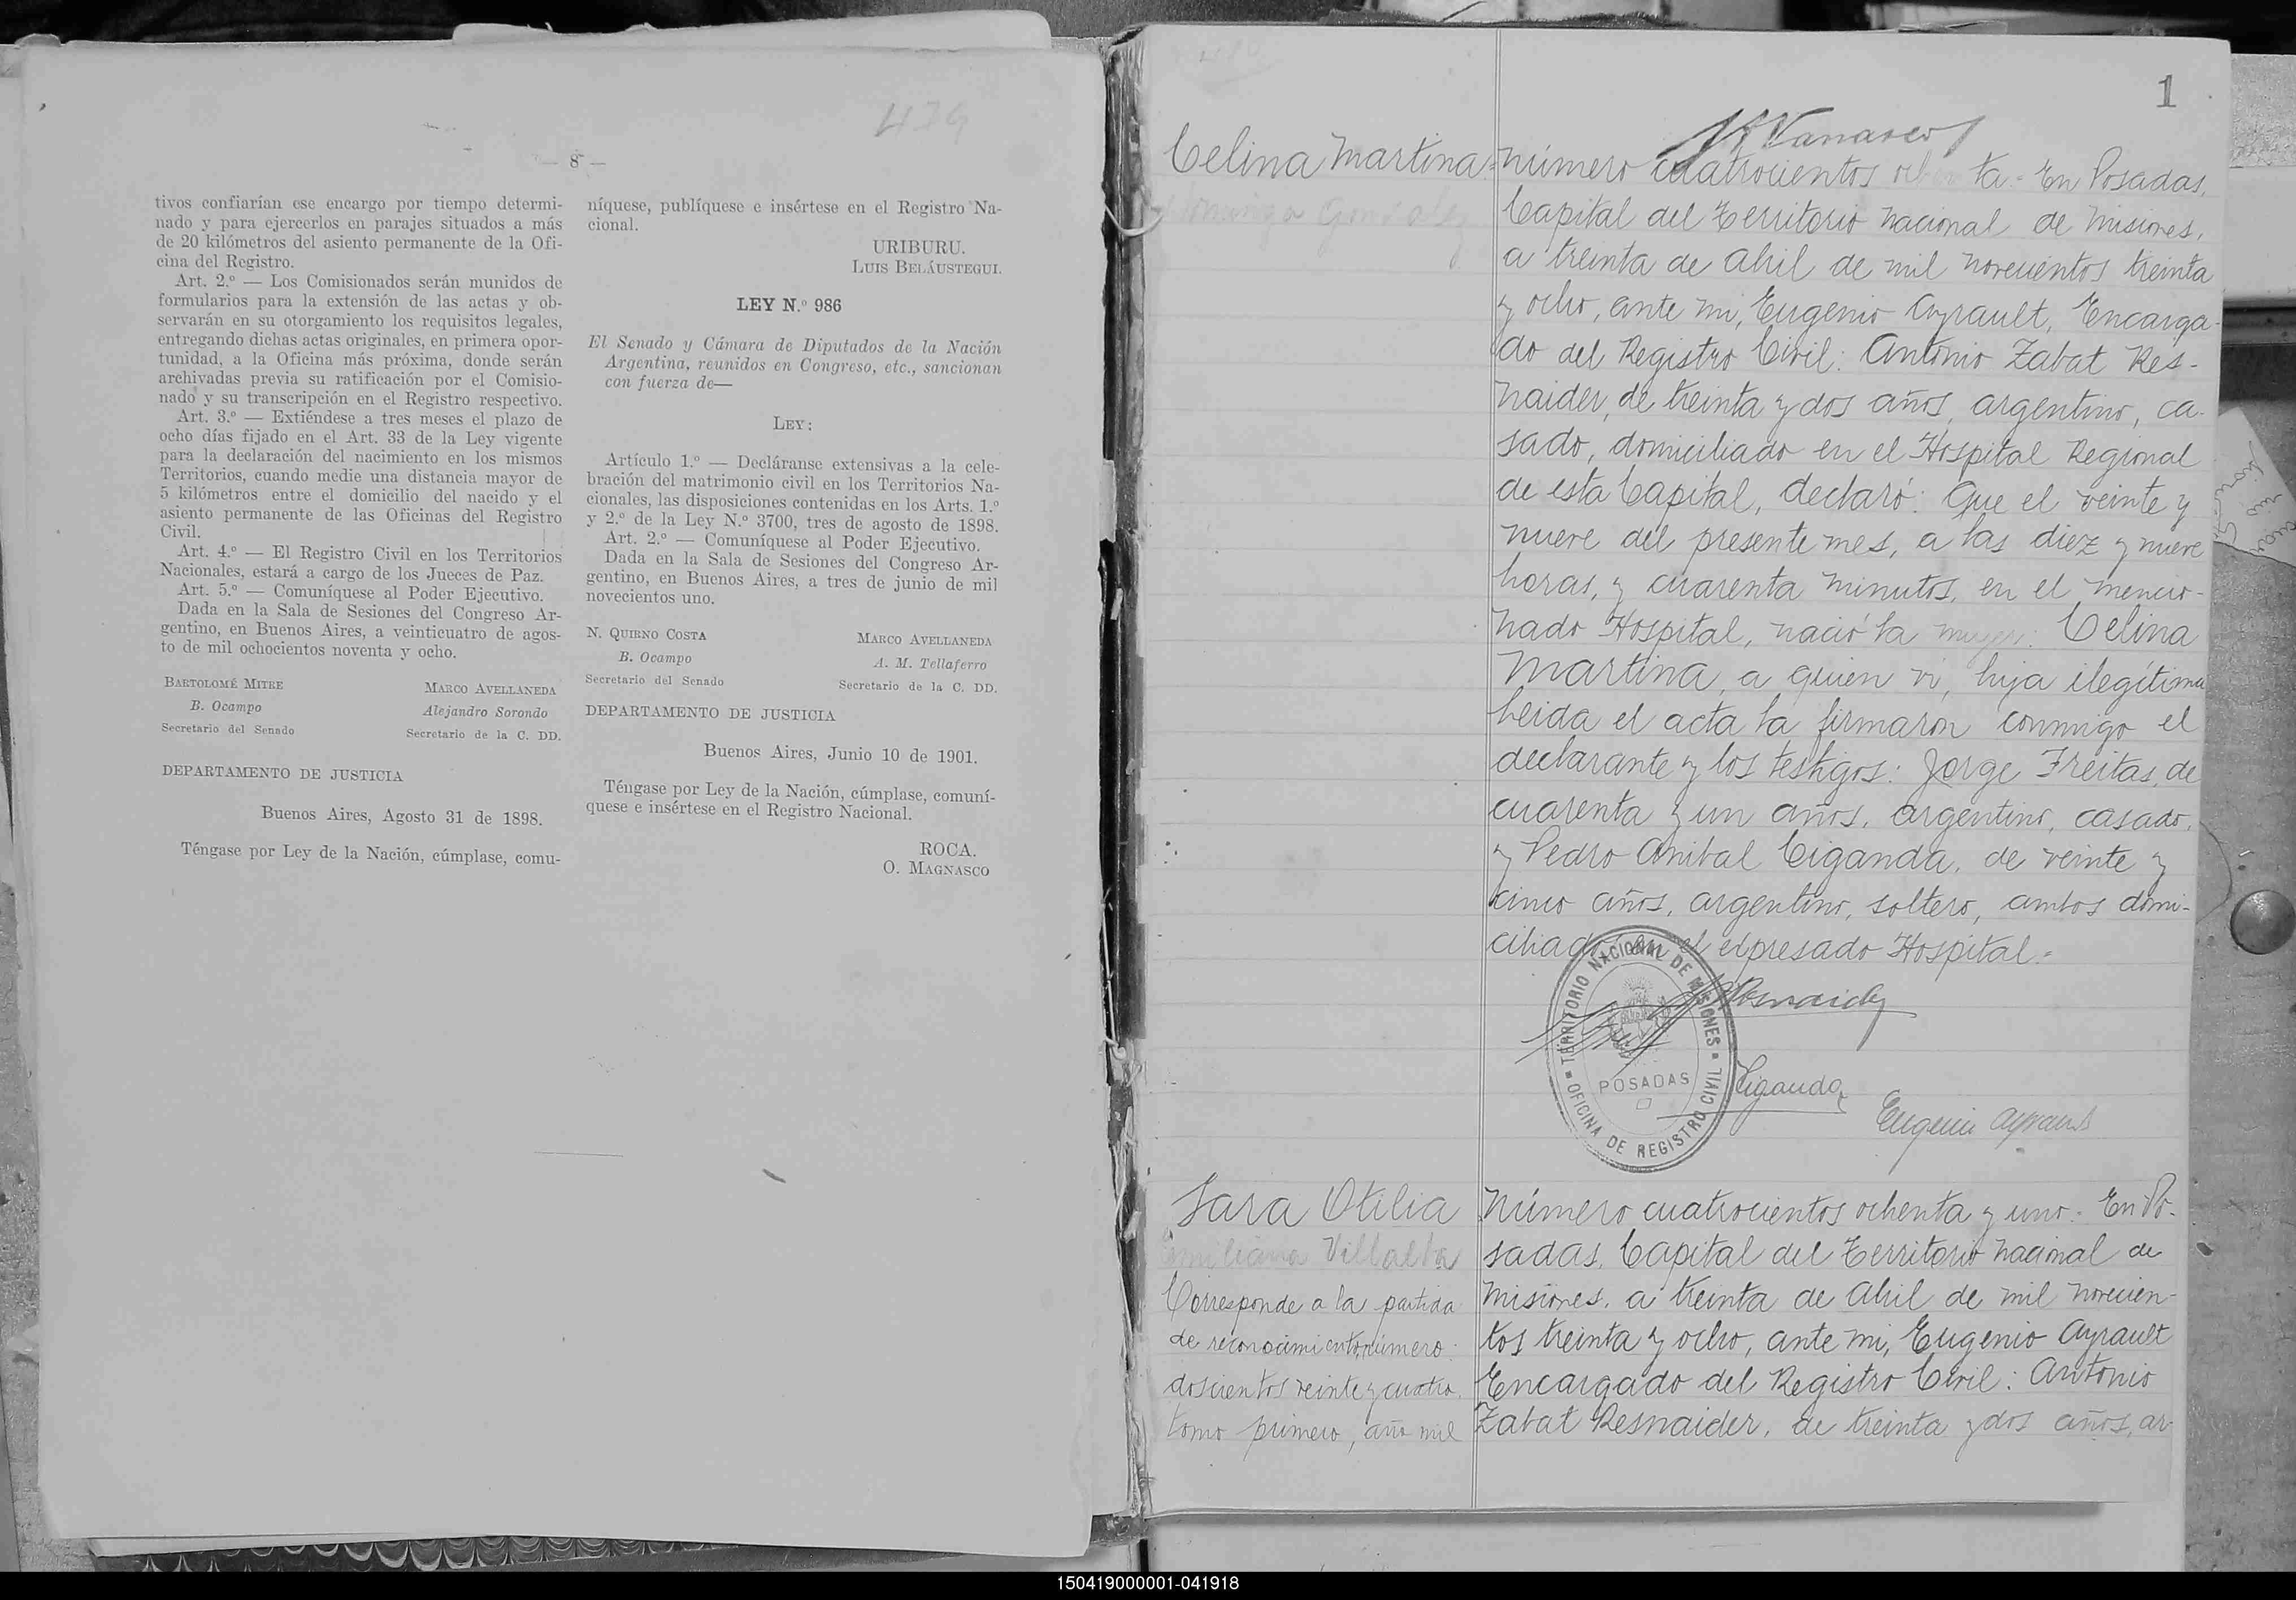 479
— 8 —
tivos confiarían ese encargo por tiempo determi-
nado y para ejercerlos en parajes situados a más
de 20 kilómetros del asiento permanente de la Ofi-
cina del Registro.
Art. 2.º — Los Comisionados serán munidos de
formularios para la extensión de las actas y ob-
servarán en su otorgamiento los requisitos legales,
entregando dichas actas originales, en primera opor-
tunidad, a la Oficina más próxima, donde serán
archivadas previa su ratificación por el Comisio-
nado y su transcripción en el Registro respectivo.
Art. 3.º — Extiéndese a tres meses el plazo de
ocho días fijado en el Art. 33 de la Ley vigente
para la declaración del nacimiento en los mismos
Territorios, cuando medie una distancia mayor de
5 kilómetros entre el domicilio del nacido y el
asiento permanente de las Oficinas del Registro
Civil.
Art. 4.º — El Registro Civil en los Territorios
Nacionales, estará a cargo de los Jueces de Paz.
Art. 5.º — Comuníquese al Poder Ejecutivo.
Dada en la Sala de Sesiones del Congreso Ar-
gentino, en Buenos Aires, a veinticuatro de agos-
to de mil ochocientos noventa y ocho.
BARTOLOMÉ MITRE MARCO AVELLANEDA
B. Ocampo Alejandro Sorondo
Secretario del Senado Secretario de la C. DD.
DEPARTAMENTO DE JUSTICIA
Buenos Aires, Agosto 31 de 1898.
Téngase por Ley de la Nación, cúmplase, comu-
níquese, publíquese e insértese en el Registro Na-
cional.
URIBURU.
LUIS BELÁUSTEGUI.
LEY N.º 986
El Senado y Cámara de Diputados de la Nación
Argentina, reunidos en Congreso, etc., sancionan
con fuerza de—
LEY:
Artículo 1.º — Decláranse extensivas a la cele-
bración del matrimonio civil en los Territorios Na-
cionales, las disposiciones contenidas en los Arts. 1.º
y 2.º de la Ley N.º 3700, tres de agosto de 1898.
Art. 2.º — Comuníquese al Poder Ejecutivo.
Dada en la Sala de Sesiones del Congreso Ar-
gentino, en Buenos Aires, a tres de junio de mil
novecientos uno.
N. QUIRNO COSTA MARCO AVELLANEDA
B. Ocampo A. M. Tellaferro
Secretario del Senado Secretario de la C. DD.
DEPARTAMENTO DE JUSTICIA
Buenos Aires, Junio 10 de 1901.
Téngase por Ley de la Nación, cúmplase, comuní-
quese e insértese en el Registro Nacional.
ROCA.
O. MAGNASCO
1
Celina Martina
Dominga Gonzalez
Número cuatrocientos ochenta.- En Posadas,
Capital del Territorio Nacional de Misiones,
a treinta de Abril de mil novecientos treinta
y ocho, ante mi, Eugenio Ayrault, Encarga-
do del Registro Civil: Antonio Zabat Res-
naider, de treinta y dos años, argentino, ca-
sado, domiciliado en el Hospital Regional
de esta Capital, declaró: Que el veinte y
nueve del presente mes, a las diez y nueve
horas, y cuarenta minutos, en el mencio-
nado Hospital, nació la mujer: Celina
Martina, a quien vi, hija ilegítima
Leida el acta la firmaron conmigo el
declarante y los testigos: Jorge Freitas, de
cuarenta y un años, argentino, casado,
y Pedro Anibal Ciganda, de veinte y
cinco años, argentino, soltero, ambos domi-
ciliados en el expresado Hospital.-
TERRITORIO NACIONAL DE MISIONES
POSADAS
OFICINA DE REGISTRO CIVIL
Resnaider
Ciganda
Eugenio Ayrault
Sara Otilia
Emiliana Villalba
Corresponde a la partida
de reconocimiento número
doscientos veinte y cuatro,
tomo primero, año mil
Número cuatrocientos ochenta y uno.- En Po-
sadas, Capital del Territorio Nacional de
Misiones, a treinta de Abril de mil novecien-
tos treinta y ocho, ante mi, Eugenio Ayrault
Encargado del Registro Civil: Antonio
Zabat Resnaider, de treinta y dos años, ar-
150419000001-041918